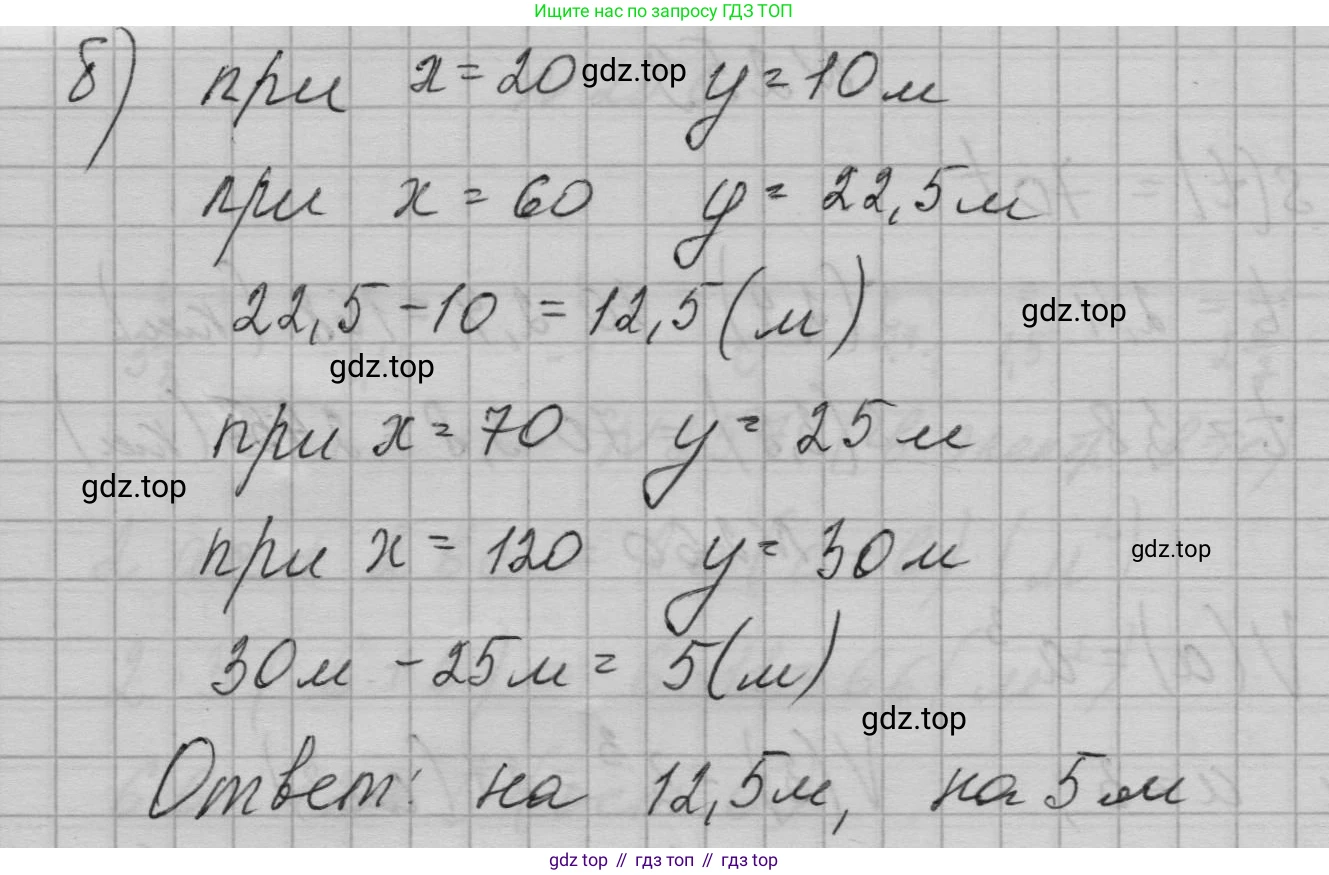 Ищите нас по запросу ГДЗ ТОП
б) при x = 20 gdz.top y = 10 м
при x = 60 y = 22,5 м
22,5 - 10 = 12,5 (м) gdz.top
gdz.top
при x = 70 y = 25 м
gdz.top
при x = 120 y = 30 м gdz.top
30 м - 25 м = 5 (м)
gdz.top
Ответ: на 12,5 м, на 5 м
gdz top // гдз топ // gdz top